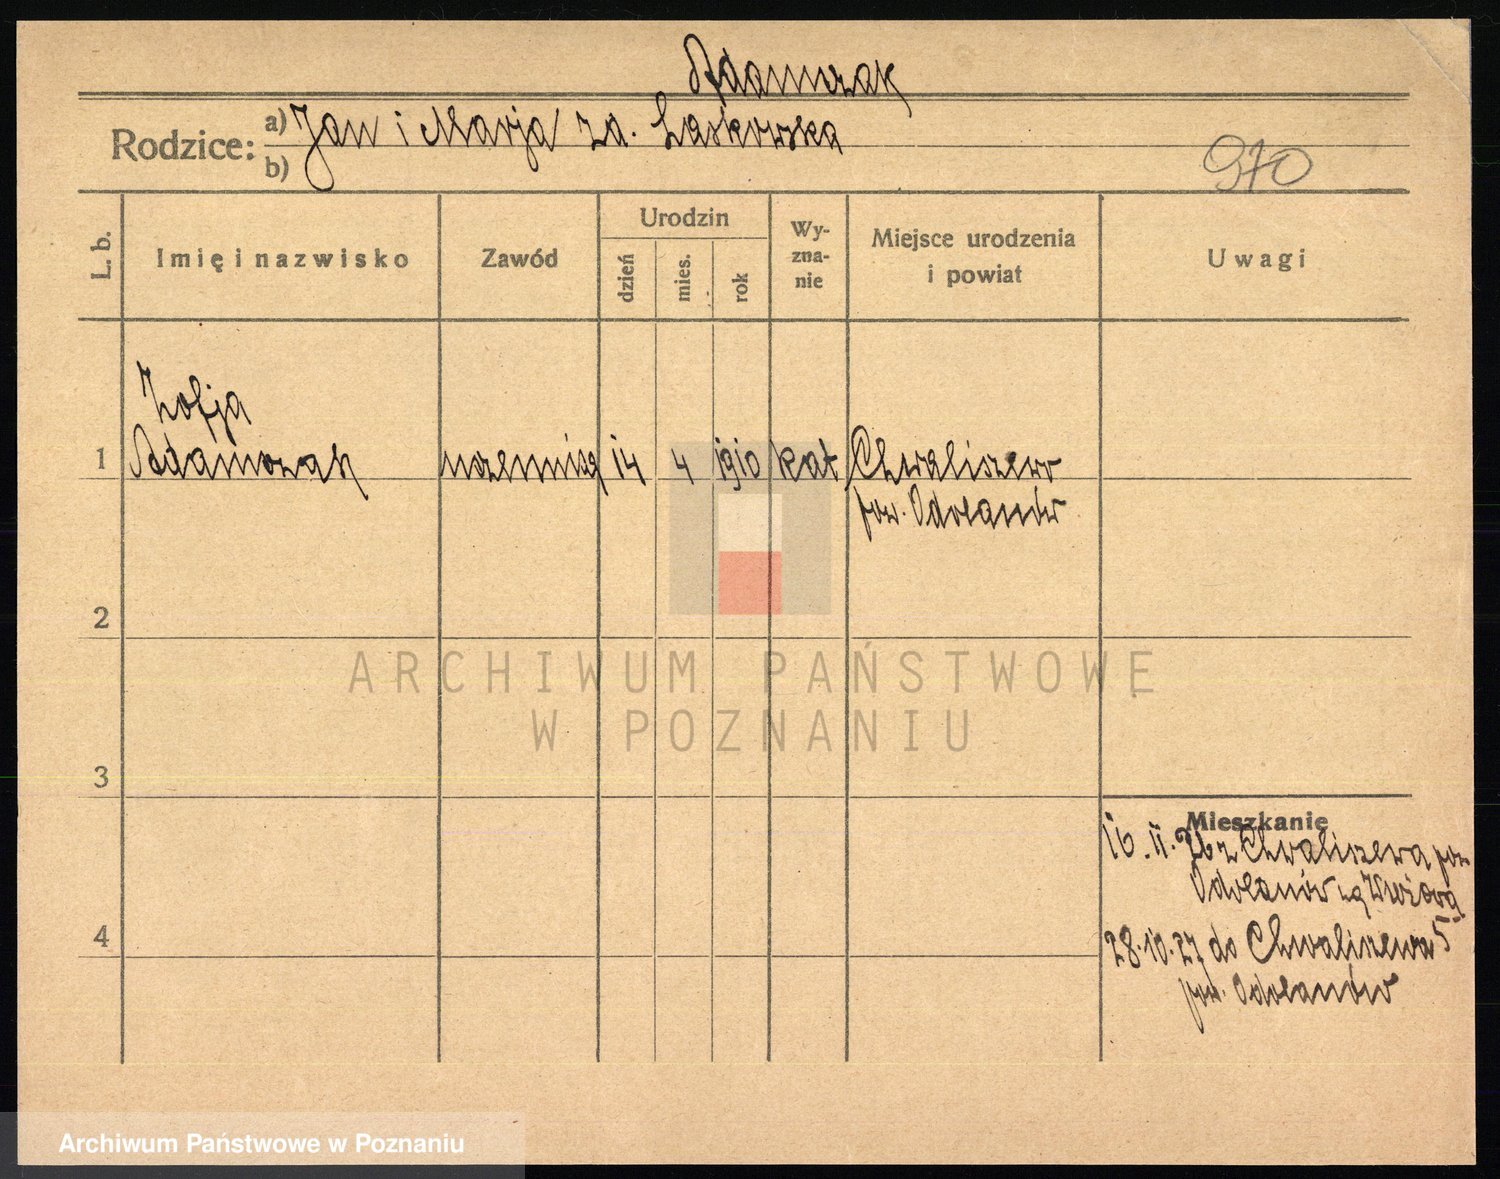 Adamczak
Rodzice: a) Jan i Marja zd. Laskowska
b)
970
L. b.
Imię i nazwisko
Zawód
Urodzin
dzień
mies.
rok
Wy-
zna-
nie
Miejsce urodzenia
i powiat
Uwagi
Zofja
1 Adamczak uczennica 14 4 1910 kat Chwaliszewo
pow. Odolanów
2
3
4
Mieszkanie
16. II. 26 z Chwaliszewa pow
Odolanów na
28.10.27 do Chwaliszewa 5
pow. Odolanów
ARCHIWUM PAŃSTWOWE
W POZNANIU
Archiwum Państwowe w Poznaniu